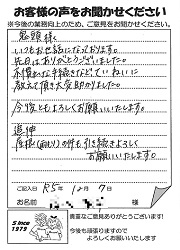 お客様の声をお聞かせください
※今後の業務向上のため、ご意見をお聞かせください。
鬼頭様
いつもお世話になっております。
先日はありがとうございました。
不慣れな手続きなどていねいに
教えて頂き大変助かりました。
今後ともよろしくお願いいたします。
追伸
度様(通り)の件も引き続きよろしく
お願いいたします。
ご記入日 R5年 12月 7日
お名前 様
Since
1979
貴重なご意見ありがとうございます!
今後も頑張りますので
よろしくお願いいたします